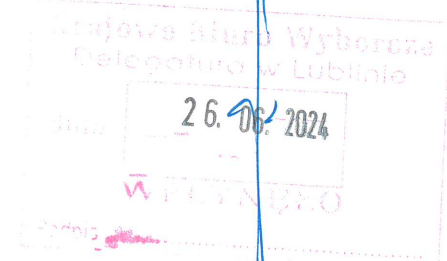 Krajowe Biuro Wyborcze
Delegatura w Lublinie
26. 06. 2024
WPŁYNĘŁO